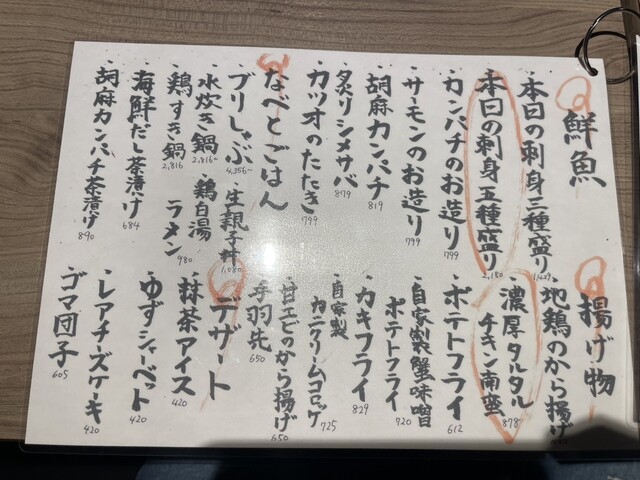 鮮魚
・本日の刺身三種盛り 1,429
・本日の刺身五種盛り 2,180
・カンパチのお造り 799
・サーモンのお造り 799
・胡麻カンパチ 819
・炙りシメサバ 879
・カツオのたたき 799
なべとごはん
・ブリしゃぶ 4,356-
・水炊き鍋 2,816-
・鶏すき鍋 2,816
・生親子丼 1,080
・鶏白湯ラーメン 980
・海鮮だし茶漬け 684
・胡麻カンパチ茶漬け 890
揚げ物
・地鶏のから揚げ
・濃厚タルタル
チキン南蛮 878
・ポテトフライ 612
・自家製蟹味噌
ポテトフライ 720
・カキフライ 829
・自家製
カニクリームコロッケ 725
・甘エビのから揚げ 650
・手羽先 650
デザート
・抹茶アイス 420
・ゆずシャーベット 420
・レアチーズケーキ 420
・ゴマ団子 605